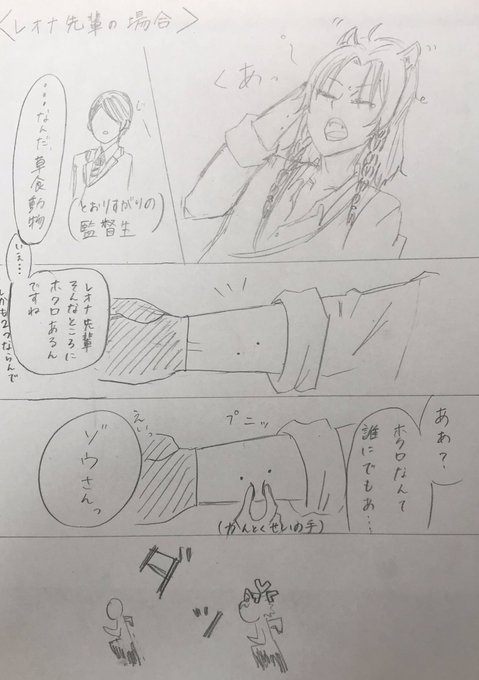 〈レオナ先輩の場合〉
くあっ〜
じー
(とおりすがりの
監督生)
…なんだ、
草食動物
いえ…
レオナ先輩
そんなところに
ホクロあるん
ですね
しかも2つならんで
ああ?
ホクロなんて
誰にでもあ…
プニッ
えいっ
(かんとくせいの手)
ゾウさんっ
ダッ